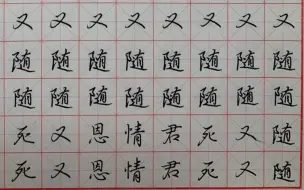 又又又又又又又又
随随随随随随随随
随随随随随随随随
死又恩情君死又随
死又恩情君死又随